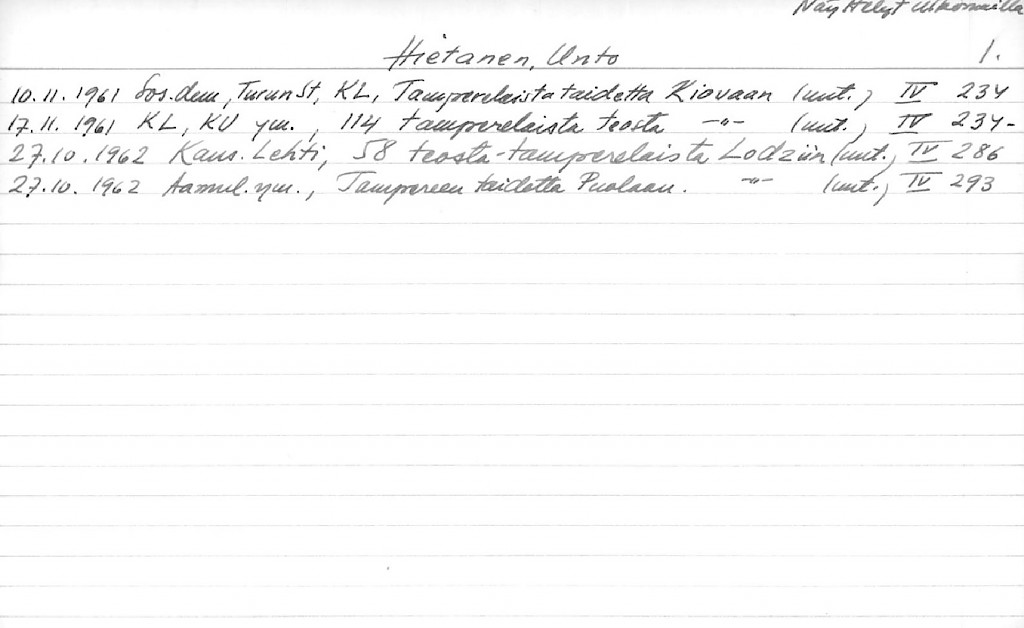 Näyttelyt ulkomailla
Hietanen, Unto 1.
10.11.1961 Sos.dem, TurunSt, KL, Tamperelaista taidetta Kiovaan (uut.) IV 234
17.11.1961 KL, KU ym., 114 tamperelaista teosta -"- (uut.) IV 234-
27.10.1962 Kans. Lehti, 58 teosta-tamperelaista Lodziin (uut.) IV 286
27.10.1962 Aamul. ym., Tampereen taidetta Puolaan. -"- (uut.) IV 293